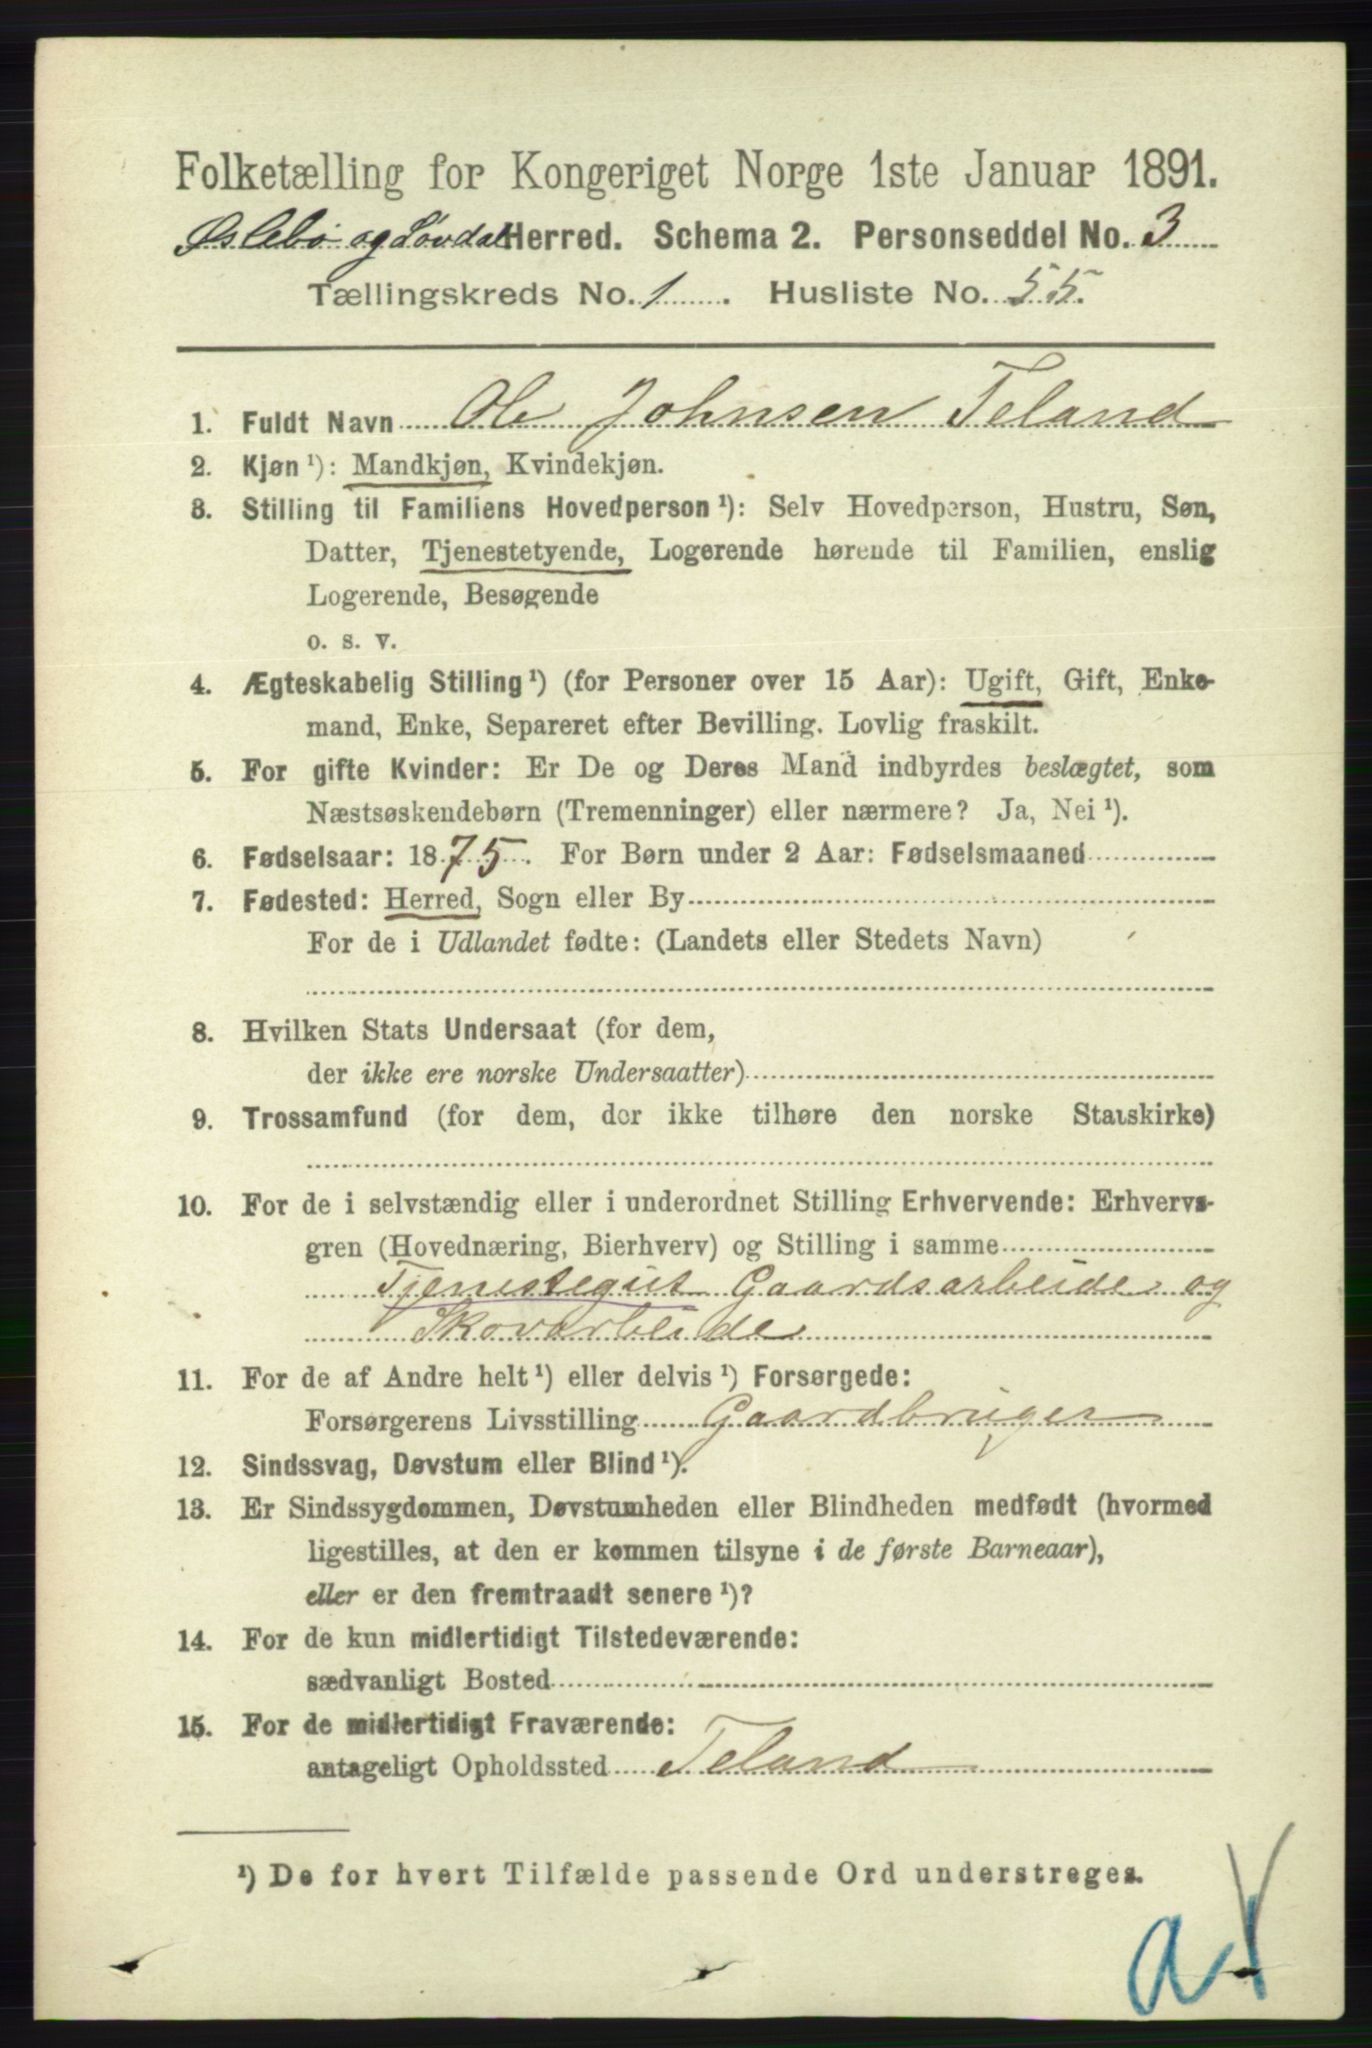 Folketælling for Kongeriget Norge 1ste Januar 1891.
Øslebø og Løvdal Herred. Schema 2. Personseddel No. 3
Tællingskreds No. 1. Husliste No. 55.
1. Fuldt Navn Ole Johnsen Teland
2. Kjøn ¹): Mandkjøn, Kvindekjøn.
3. Stilling til Familiens Hovedperson ¹): Selv Hovedperson, Hustru, Søn,
Datter, Tjenestetyende, Logerende hørende til Familien, enslig
Logerende, Besøgende
o. s. v.
4. Ægteskabelig Stilling ¹) (for Personer over 15 Aar): Ugift, Gift, Enke-
mand, Enke, Separeret efter Bevilling. Lovlig fraskilt.
5. For gifte Kvinder: Er De og Deres Mand indbyrdes beslægtet, som
Næstsøskendebørn (Tremenninger) eller nærmere? Ja, Nei ¹).
6. Fødselsaar: 1875. For Børn under 2 Aar: Fødselsmaaned
7. Fødested: Herred, Sogn eller By
For de i Udlandet fødte: (Landets eller Stedets Navn)
8. Hvilken Stats Undersaat (for dem,
der ikke ere norske Undersaatter)
9. Trossamfund (for dem, der ikke tilhøre den norske Statskirke)
10. For de i selvstændig eller i underordnet Stilling Erhvervende: Erhvervs-
gren (Hovednæring, Bierhverv) og Stilling i samme
Tjenestegut Gaardsarbeide og
Skovarbeide
11. For de af Andre helt ¹) eller delvis ¹) Forsørgede:
Forsørgerens Livsstilling Gaardbruger
12. Sindssvag, Døvstum eller Blind ¹).
13. Er Sindssygdommen, Døvstumheden eller Blindheden medfødt (hvormed
ligestilles, at den er kommen tilsyne i de første Barneaar),
eller er den fremtraadt senere ¹)?
14. For de kun midlertidigt Tilstedeværende:
sædvanligt Bosted
15. For de midlertidigt Fraværende:
antageligt Opholdssted Teland
¹) De for hvert Tilfælde passende Ord understreges.